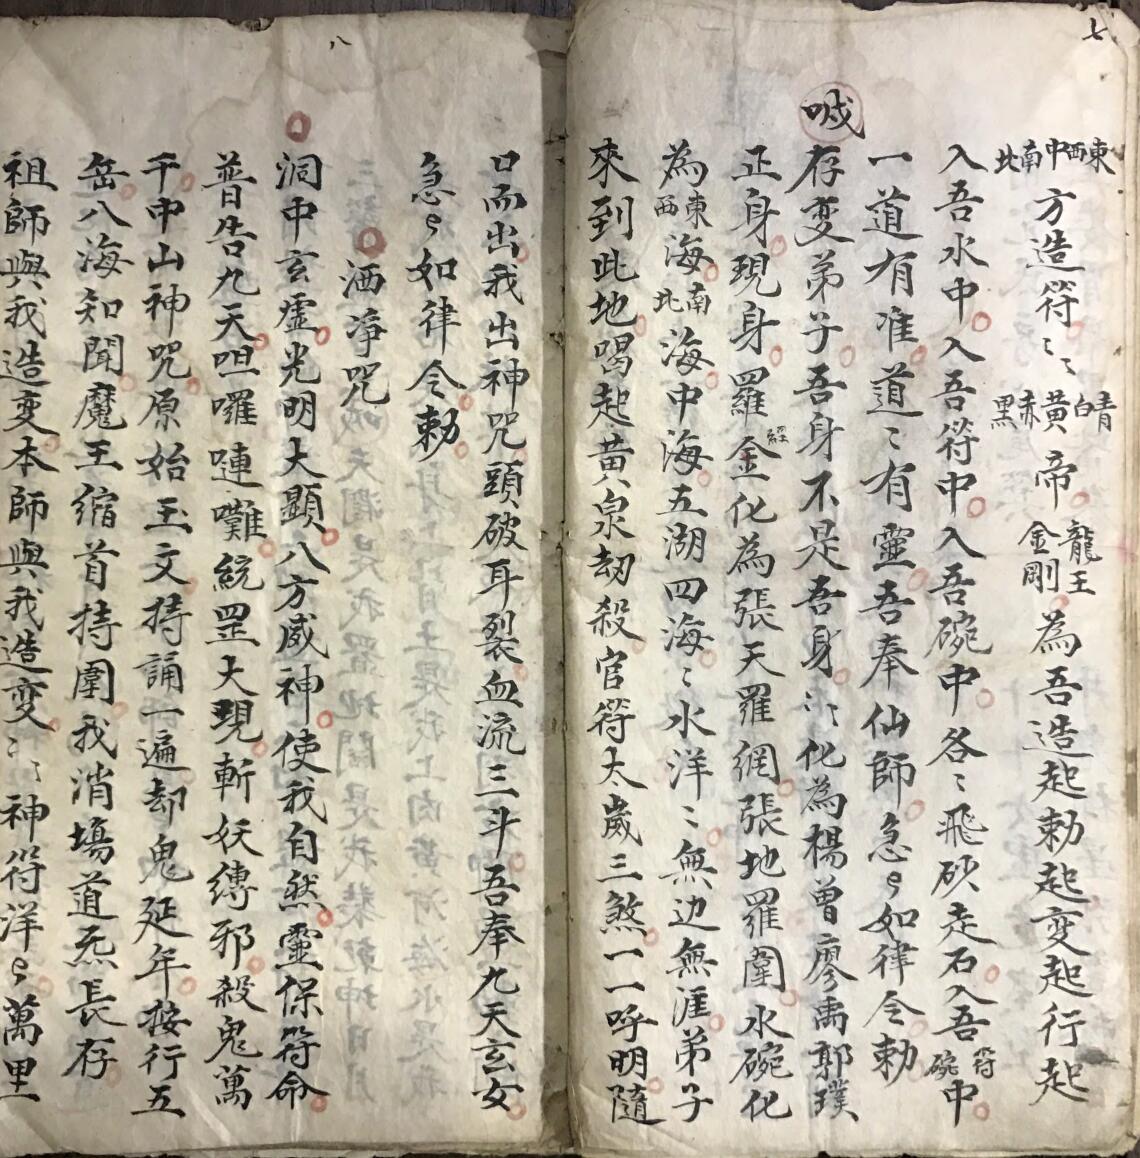 七
東西中南北方造符〻黃青白赤黑帝龍王金剛為吾造起勅起変起行起
入吾水中入吾符中入吾碗中各〻飛砂走石入吾符碗中
一道有准道〻有靈吾奉仙師急〻如律令勅
喊
存変弟子吾身不是吾身〻化為楊曾廖禹郭璞
正身現身羅經金化為張天羅網張地羅圍水碗化
為東西海南北海中海五湖四海〻水洋〻無边無涯弟子
來到此地喝起黃泉刼殺官符太歲三煞一一呼明隨
八
口而出我出神咒頭破耳裂血流三斗吾奉九天玄女
急〻如律令勅
洒凈咒
洞中玄虛光明大顯八方威神使我自然靈保符命
普告九天呾囉嗹囋統罡大現斬妖縛邪殺鬼萬
千中山神咒原始玉文持誦一遍却鬼延年按行五
岳八海知聞魔王縮首持圍我消塲道炁長存
祖師與我造变本師與我造变〻神符洋〻萬里